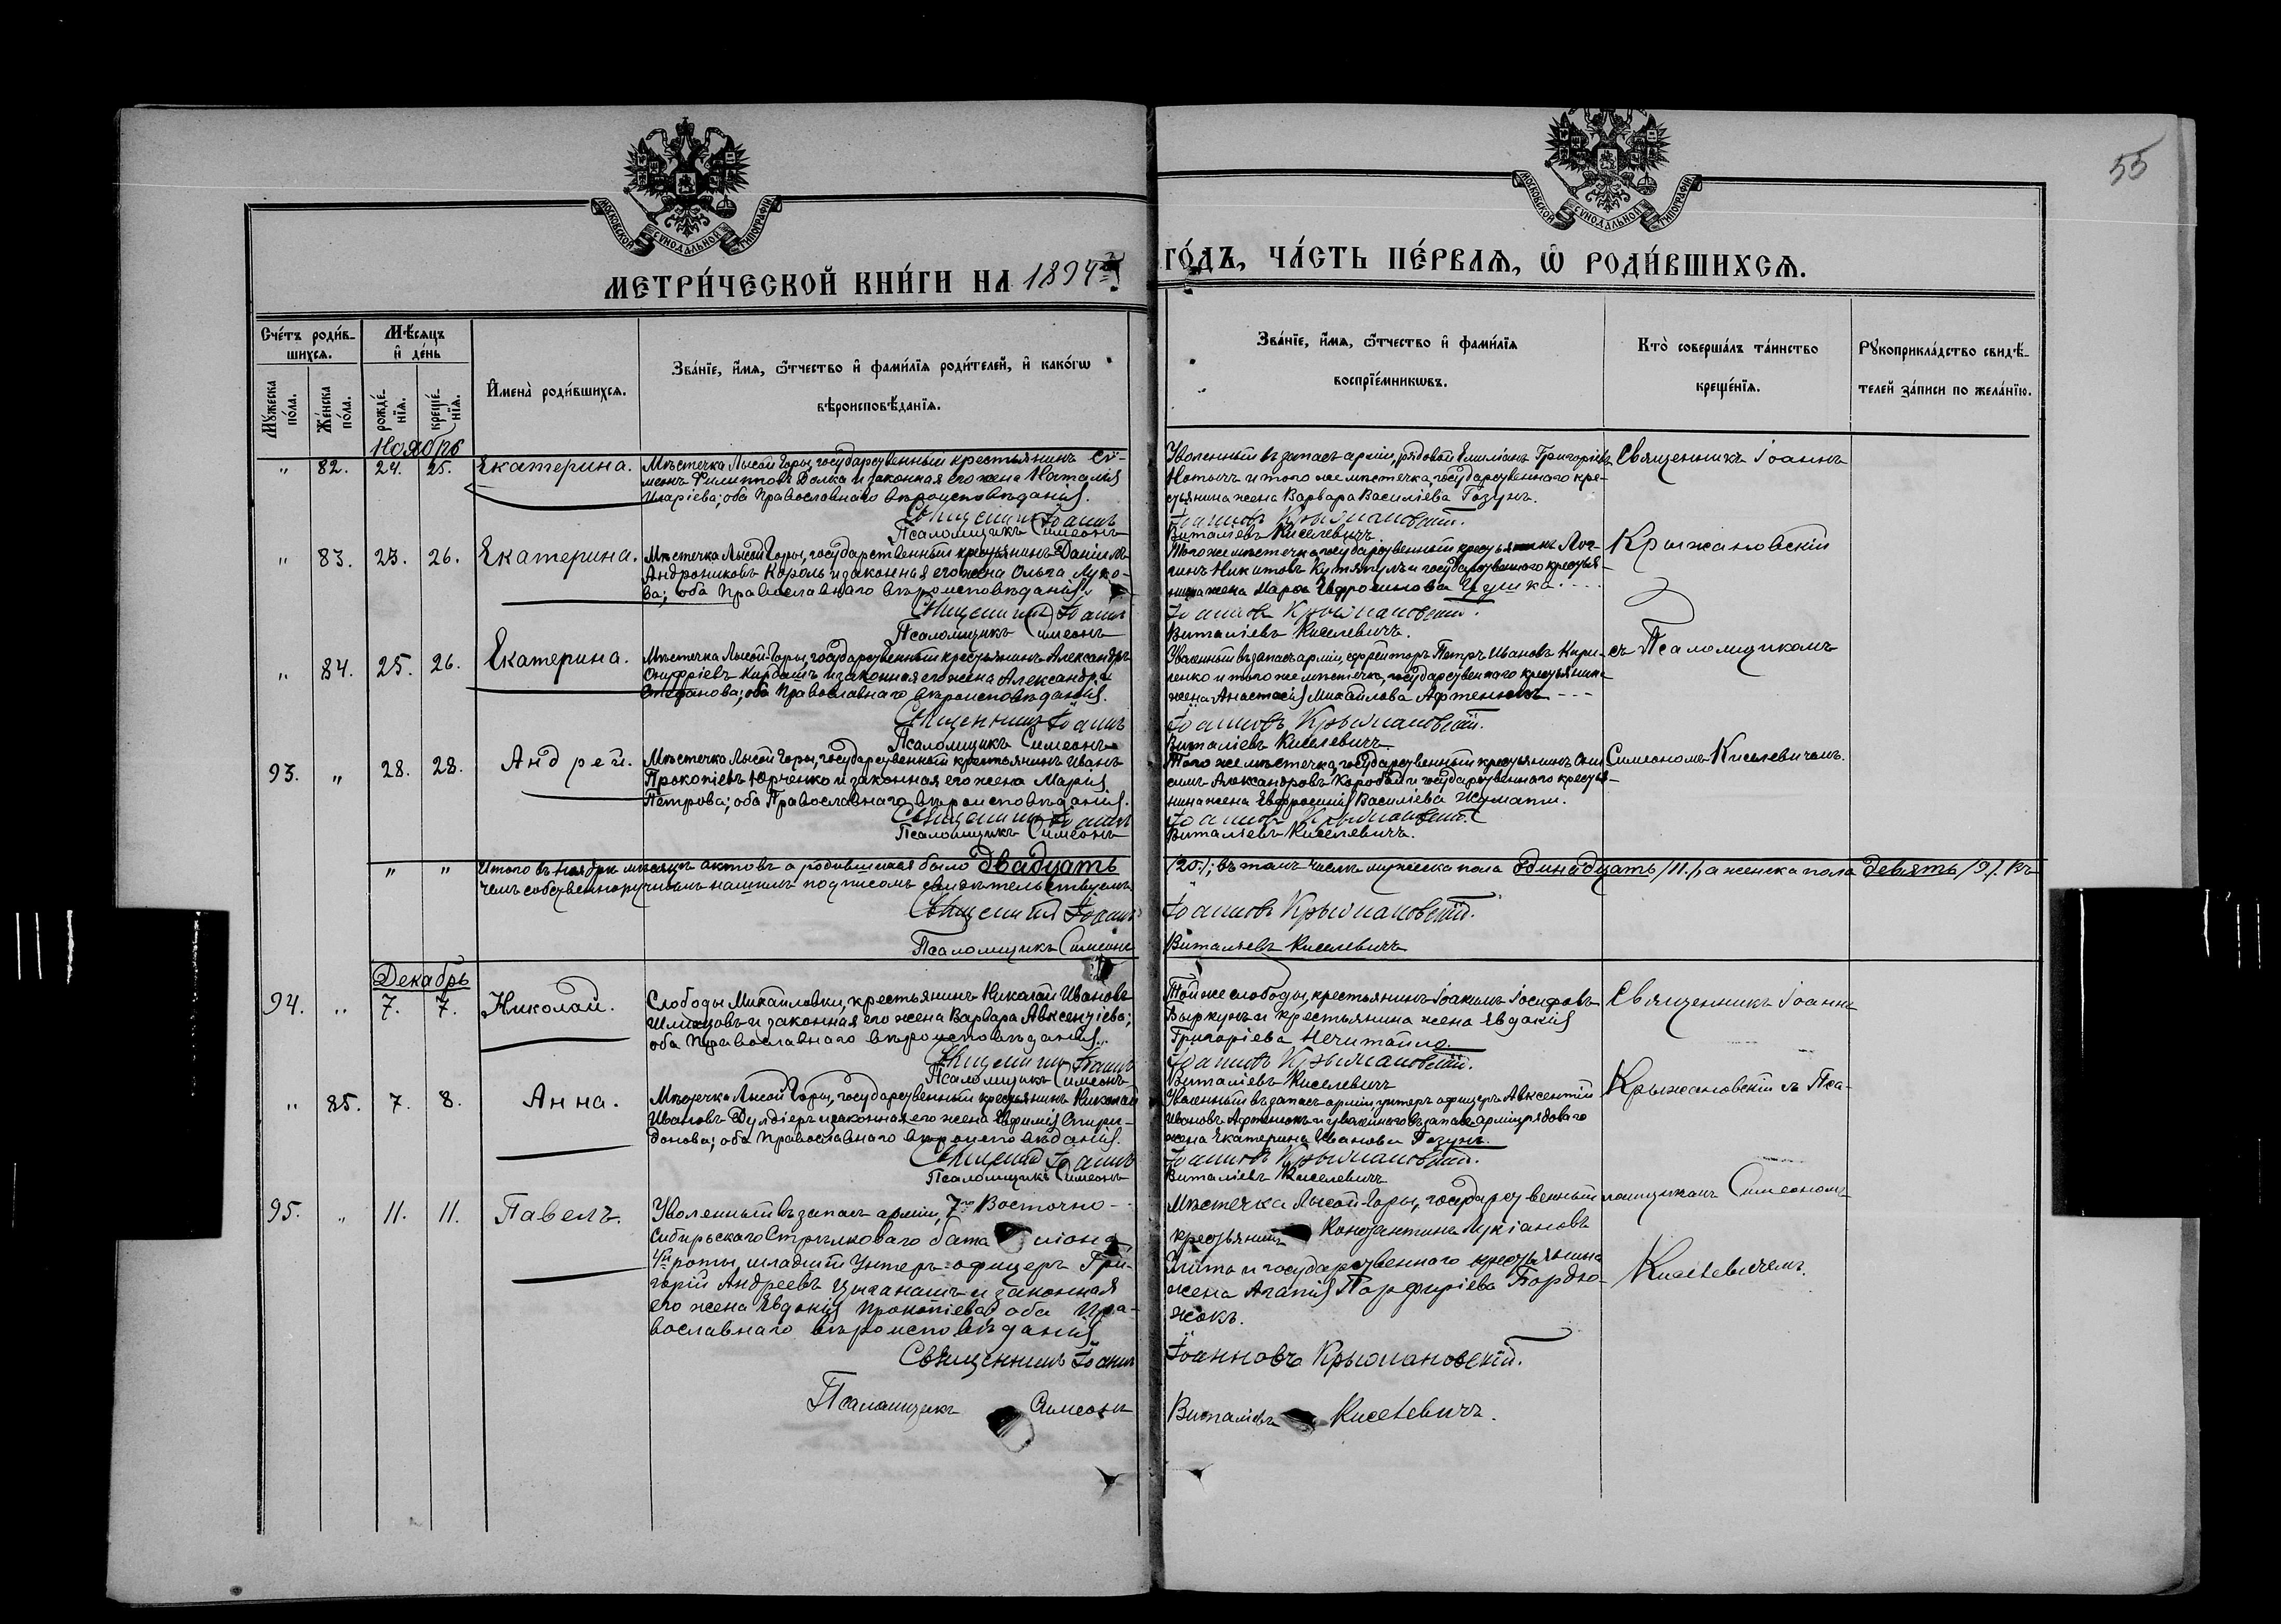 55
МОСКОВСКОЙ СѴНОДАЛЬНОЙ ТИПОГРАФІИ
МОСКОВСКОЙ СѴНОДАЛЬНОЙ ТИПОГРАФІИ
МЕТРИ́ЧЕСКОЙ КНИ́ГИ НА 1894й
ГО́ДЪ, ЧА́СТЬ ПЕ́РВАѦ, Ѡ РОДИ́ВШИХСѦ.
Сче́тъ роди́в-
шихсѧ.
Мꙋ́жеска по́ла.
Же́нска по́ла.
Мѣ́сѧцъ
и҆ де́нь
рожде́-
нїѧ.
креще́-
нїѧ.
И҆мена̀ роди́вшихсѧ.
Зва́нїе, и҆́мѧ, ѻ҆́тчество и҆ фами́лїѧ роди́телей, и҆ како́гѡ
вѣроисповѣ́данїѧ.
Зва́нїе, и҆́мѧ, ѻ҆́тчество и҆ фами́лїѧ
воспрїе́мникѡвъ.
Кто̀ соверша́лъ та́инство
креще́нїѧ.
Рꙋкоприкла́дство свидѣ́-
телей за́писи по жела́нїю.
Ноябрь
" 82. 24. 25. Екатерина.
Мѣстечка Лысой Горы, государственный крестьянинъ Си-
меонъ Филипповъ Долка и законная его жена Наталія
Иларіева; оба Православнаго вѣроисповѣданія.
Священникъ Іоаннъ
Псаломщикъ Симеонъ
Уволенный въ запасъ арміи, рядовой Емиліанъ Григорьевъ
и того же мѣстечка, государственнаго кре-
стьянина жена Варвара Василіева Гозунъ.
Іоанновъ Крыжановскій.
Виталіевъ Киселевичъ.
Священникъ Іоаннъ
" 83. 25. 26. Екатерина.
Мѣстечка Лысой Горы, государственный крестьянинъ Даніилъ
Андрониковъ Король и законная его жена Ольга Луко-
ва; оба Православнаго вѣроисповѣданія.
Священникъ Іоаннъ
Псаломщикъ Симеонъ
Того же мѣстечка, государственный крестьянинъ Лог-
гинъ Никитовъ и государственнаго крестья-
нина жена Марѳа
Іоанновъ Крыжановскій.
Виталіевъ Киселевичъ.
Крыжановскій
" 84. 25. 26. Екатерина.
Мѣстечка Лысой-Горы, государственный крестьянинъ Александръ
Онуфріевъ и законная его жена Александра
Стефанова; оба Православнаго вѣроисповѣданія.
Священникъ Іоаннъ
Псаломщикъ Симеонъ
Уволенный въ запасъ арміи, ефрейторъ Петръ Ивановъ Кири-
ленко и того же мѣстечка, государственнаго крестьянина
жена Анастасія Михайлова Афтенюкъ
Іоанновъ Крыжановскій.
Виталіевъ Киселевичъ
съ Псаломщикомъ
93. " 28. 28. Андрей.
Мѣстечка Лысой Горы, государственный крестьянинъ Иванъ
Прокопіевъ Юрченко и законная его жена Марія
Петрова; оба Православнаго вѣроисповѣданія.
Священникъ Іоаннъ
Псаломщикъ Симеонъ
Того же мѣстечка, государственный крестьянинъ Они-
симъ Александровъ Коробай и государственнаго крестья-
нина жена Евфросинія Василіева
Іоанновъ Крыжановскій.
Виталіевъ Киселевичъ.
Симеономъ Киселевичемъ.
" " Итого въ Ноябрѣ мѣсяцѣ актовъ о родившихся было Двадцать
/20./; въ томъ числѣ мужеска пола одинадцать /11./, а женска пола девять /9./. Въ
чемъ собственноручнымъ нашимъ подписомъ свидѣтельствуемъ.
Священникъ Іоаннъ
Іоанновъ Крыжановскій.
Псаломщикъ Симеонъ
Виталіевъ Киселевичъ
Декабрь
94. " 7. 7. Николай.
Слободы Михайловки, крестьянинъ Николай Ивановъ
и законная его жена Варвара Авксентіева;
оба Православнаго вѣроисповѣданія.
Священникъ Іоаннъ
Псаломщикъ Симеонъ
Той же слободы, крестьянинъ Іоакимъ Іосифовъ
и крестьянина жена Евдокія
Григоріева Нечитайло.
Іоанновъ Крыжановскій.
Виталіевъ Киселевичъ
Священникъ Іоаннъ
" 85. 7. 8. Анна.
Мѣстечка Лысой Горы, государственный крестьянинъ Николай
Ивановъ Дулдіеръ и законная его жена Евфимія Спири-
донова; оба Православнаго вѣроисповѣданія.
Священникъ Іоаннъ
Псаломщикъ Симеонъ
Уволенный въ запасъ арміи, унтеръ офицеръ Авксентій
Ивановъ Афтенюкъ и уволеннаго въ запасъ арміи рядоваго
жена Екатерина Иванова Гозунъ.
Іоанновъ Крыжановскій.
Виталіевъ Киселевичъ
Крыжановскій съ Пса-
95. " 11. 11. Павелъ.
Уволенный въ запасъ арміи, 7го Восточно-
Сибирьскаго Стрѣлковаго баталіона,
4й роты, младшій Унтеръ-офицеръ Гри-
горій Андреевъ Цыганашъ и законная
его жена Евдокія Прокопіева; оба Пра-
вославнаго вѣроисповѣданія
Священникъ Іоаннъ
Псаломщикъ Симеонъ
Мѣстечка Лысой-Горы, государственный
крестьянинъ Константинъ Лукіановъ
и государственнаго крестьянина
жена Агапія Порфиріева Бордю-
жокъ.
Іоанновъ Крыжановскій.
Виталіевъ Киселевичъ.
ломщикомъ Симеономъ
Киселевичемъ.